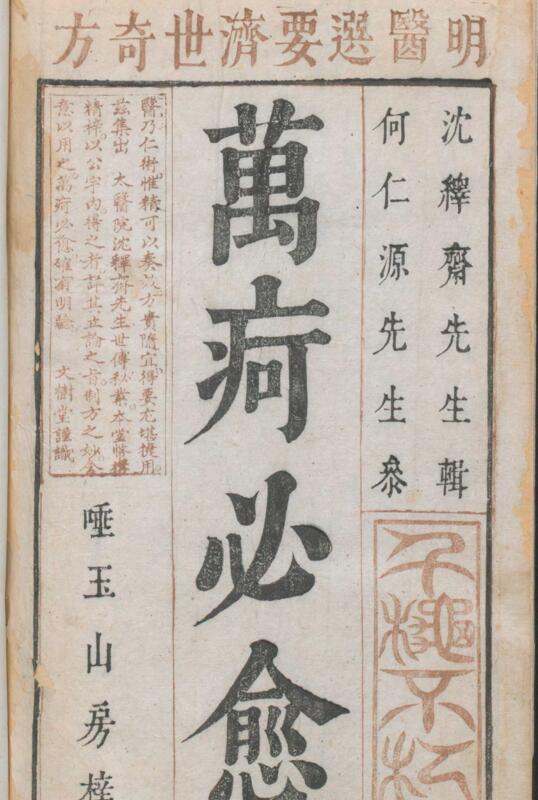 明醫選要濟世奇方
沈繹齋先生輯
何仁源先生叅
萬疴必愈
醫乃仁術惟精可以奏效方貴隨宜得要尤堪援用
茲集出 太醫院沈繹齋先生世傳秘幾本堂幣揆
精梓以公宇內得之者詳其立論之旨制方之妙
意以用之萬疴必愈確有明驗 文樹堂謹識
唾玉山房梓